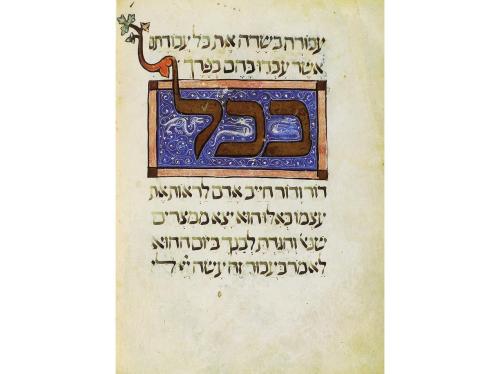 עבודה בשדה את כל עבודתם
אשר עבדו בהם בפרך
בכל
דור ודור חייב אדם לראות את
עצמו כאלו הוא יצא ממצרים
שנ׳ והגדת לבנך ביום ההוא
לאמר בעבור זה עשה יי לי